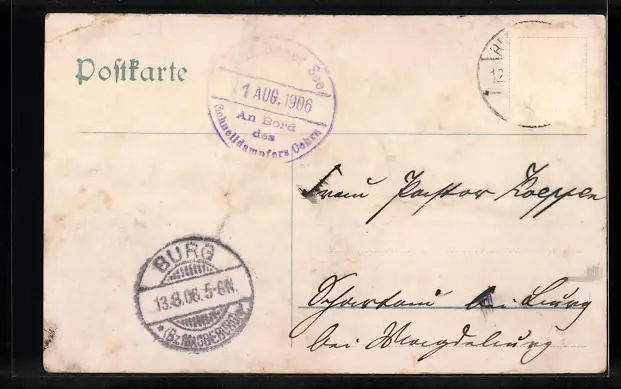 Postkarte
Auf hoher See
1 AUG. 1906
An Bord
des
Schnelldampfers Cobra
12
Frau Pastor Koeppe
Schartau bei Burg
bei Magdeburg
BURG
13.8.06. 5-6N.
*(Bz. MAGDEBURG)*